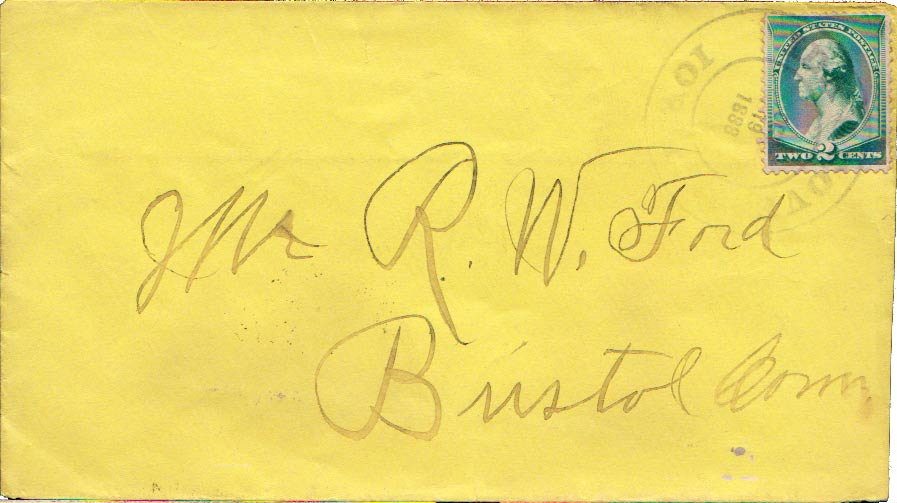 UNITED STATES POSTAGE
TWO 2 CENTS
19
1888
Mr R. W. Ford
Bristol Conn